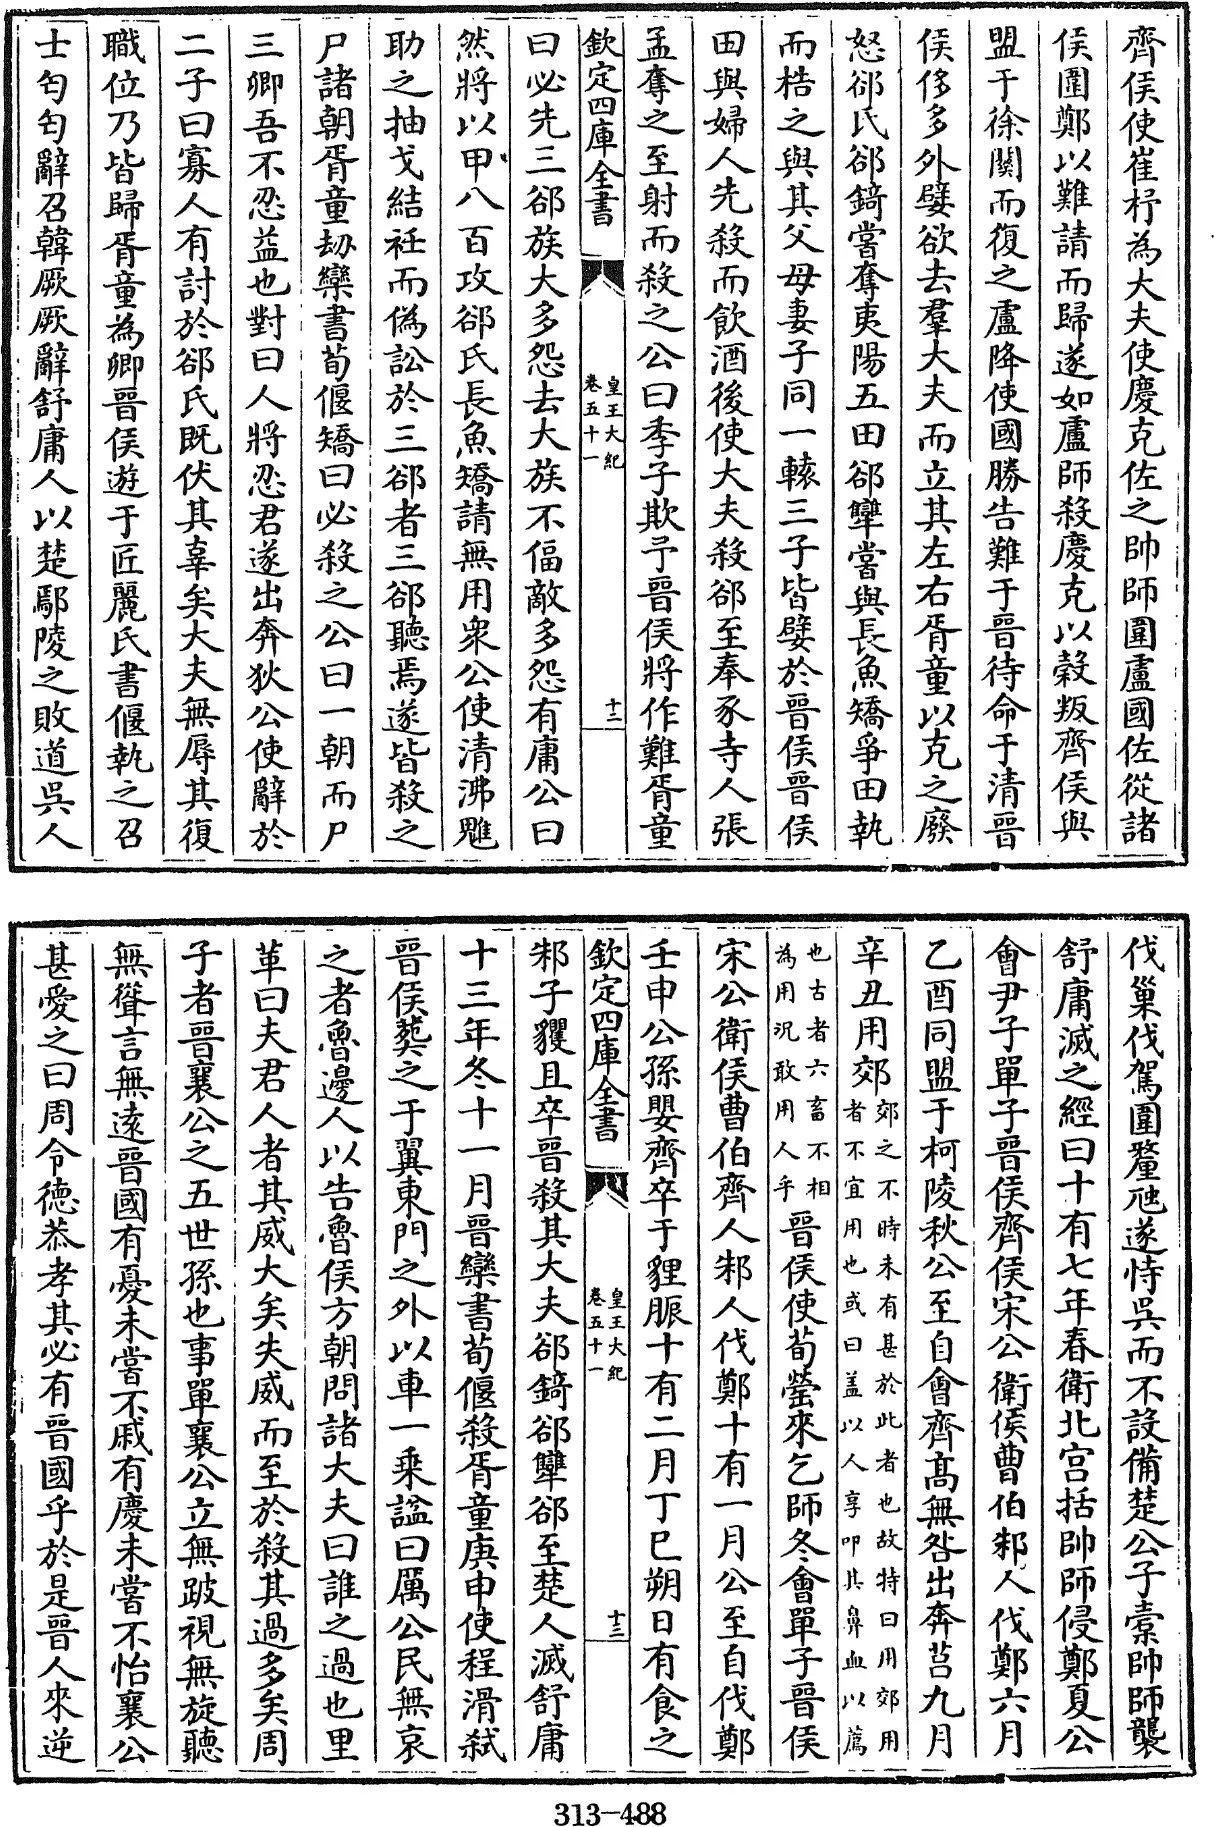 齊侯使崔杼為大夫使慶克佐之帥師圍盧國佐從諸
侯圍鄭以難請而歸遂如盧師殺慶克以穀叛齊侯與
盟于徐關而復之盧降使國勝告難于晉待命于清晉
侯侈多外嬖欲去羣大夫而立其左右胥童以克之廢
怒郤氏郤錡嘗奪夷陽五田郤犨嘗與長魚矯爭田執
而梏之與其父母妻子同一轅三子皆嬖於晉侯晉侯
田與婦人先殺而飲酒後使大夫殺郤至奉豕寺人張
孟奪之至射而殺之公曰季子欺予晉侯將作難胥童
欽定四庫全書
皇王大紀
卷五十一
十二
曰必先三郤族大多怨去大族不偪敵多怨有庸公曰
然將以甲八百攻郤氏長魚矯請無用衆公使清沸魋
助之抽戈結衽而偽訟於三郤者三郤聽焉遂皆殺之
尸諸朝胥童刼欒書荀偃矯曰必殺之公曰一朝而尸
三卿吾不忍益也對曰人將忍君遂出奔狄公使辭於
二子曰寡人有討於郤氏既伏其辜矣大夫無辱其復
職位乃皆歸胥童為卿晉侯遊于匠麗氏書偃執之召
士匄匄辭召韓厥厥辭舒庸人以楚鄢陵之敗道吳人
伐巢伐駕圍釐虺遂恃吳而不設備楚公子橐帥師襲
舒庸滅之經曰十有七年春衛北宮括帥師侵鄭夏公
會尹子單子晉侯齊侯宋公衛侯曹伯邾人伐鄭六月
乙酉同盟于柯陵秋公至自會齊髙無咎出奔莒九月
辛丑用郊郊之不時未有甚於此者也故特曰用郊用
者不宜用也或曰盖以人享叩其鼻血以薦
也古者六畜不相
為用況敢用人乎晉侯使荀罃來乞師冬會單子晉侯
宋公衛侯曹伯齊人邾人伐鄭十有一月公至自伐鄭
壬申公孫嬰齊卒于貍脤十有二月丁巳朔日有食之
欽定四庫全書
皇王大紀
卷五十一
十三
邾子貜且卒晉殺其大夫郤錡郤犨郤至楚人滅舒庸
十三年冬十一月晉欒書荀偃殺胥童庚申使程滑弒
晉侯葬之于翼東門之外以車一乘諡曰厲公民無哀
之者魯邊人以告魯侯方朝問諸大夫曰誰之過也里
革曰夫君人者其威大矣失威而至於殺其過多矣周
子者晉襄公之五世孫也事單襄公立無跛視無旋聽
無聳言無遠晉國有憂未嘗不戚有慶未嘗不怡襄公
甚愛之曰周令德恭孝其必有晉國乎於是晉人來逆
313-488